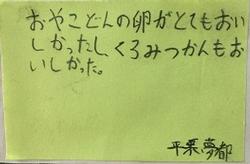 おやこどんの卵がとてもおい
しかったし、くろみつかんもお
いしかった。
平栗夢都